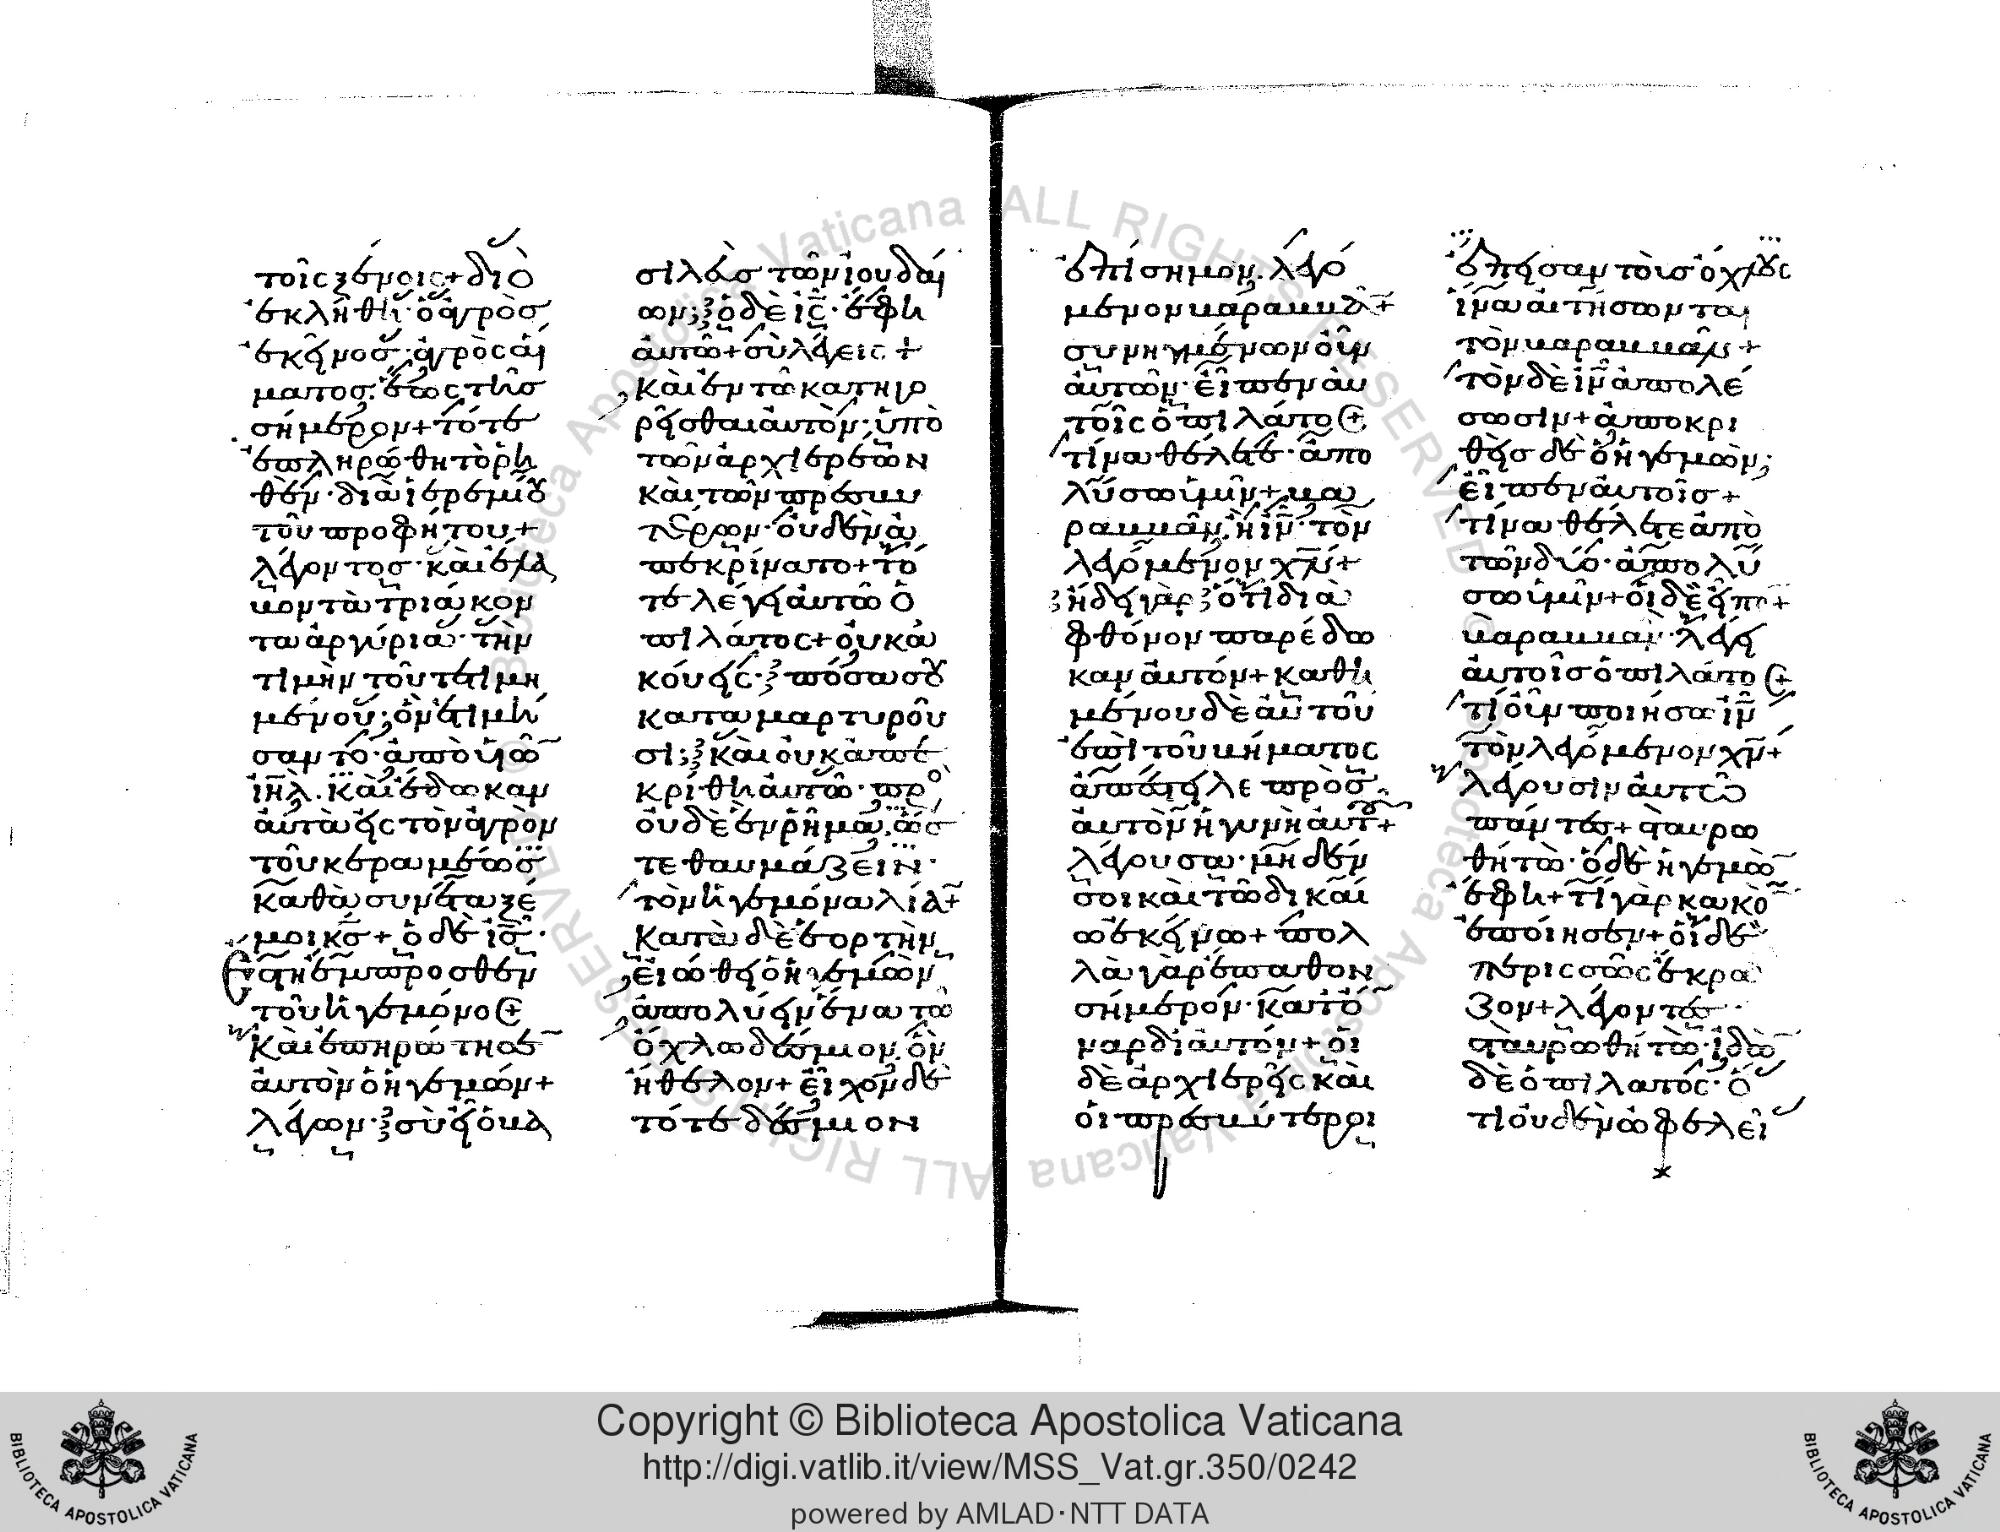 τοῖς ξένοις + διὸ
ἐκλήθη· ὁ ἀγρὸσ
ἐκεῖνοσ· ἀγρὸς αἵ
ματοσ· ἕως τῆσ
σήμερον + τότε
ἐπληρώθη τὸ ῥη
θὲν· διὰ ἱερεμίου
τοῦ προφήτου +
λέγοντος· καὶ ἔλα
βον τὰ τριάκον
τα ἀργύρια· τὴν
τιμὴν τοῦ τετιμη
μένου; ὃν ἐτιμή
σαντο· ἀπὸ υἱῶ
ιηλ. καὶ ἔδωκαν
αὐτὰ εἰς τὸν ἀγρὸν
τοῦ κεραμέως
καθὰ συνέταξέ
μοι κς + ὁ δὲ ις·
Ἔστη ἔμπροσθεν
τοῦ ἡγεμόνος +
Καὶ ἐπηρώτησε
αὐτὸν ὁ ἡγεμών +
λέγων· σὺ εἶ ὁ βα
σιλεὺσ τῶν ἰουδαί
ων; ὁ δὲ ις· ἔφη
αὐτῶ + σὺ λέγεις +
Καὶ ἐν τῶ κατηγο
ρεῖσθαι αὐτὸν· ὑπὸ
τῶν ἀρχιερέων
καὶ τῶν πρεσβυ
τέρων· οὐδὲν ἀ
πεκρίνατο + τό
τε λέγει αὐτῶ ὁ
πιλάτος + οὐκ ἀ
κούεις· πόσα σου
καταμαρτυροῦ
σι; καὶ οὐκ ἀπε
κρίθη αὐτῶ· πρὸ
οὐδὲ ἓν ῥῆμα. ὥσ
τε θαυμάζειν·
τὸν ἡγεμόνα λίαν +
Κατὰ δὲ ἑορτὴν
εἰώθει ὁ ἡγεμὼν
ἀπολύειν ἕνα τῶ
ὄχλω δέσμιον. ὃν
ἤθελον + εἶχον δὲ
τότε δέσμιον
ἐπίσημον. λεγό
μενον βαραββᾶν +
συνηγμένων οὖν
αὐτῶν· εἶπεν αὐ
τοῖς ὁ πιλάτος +
τίνα θέλετε· ἀπο
λύσω ὑμῖν + βα
ραββᾶν. ἢ ιν· τὸν
λεγόμενον χν +
ἤδει γὰρ ὅτι διὰ
φθόνον παρέδω
καν αὐτόν + καθη
μένου δὲ αὐτοῦ
ἐπὶ τοῦ βήματος
ἀπέστειλε πρὸς
αὐτὸν ἡ γυνὴ αὐτοῦ +
λέγουσα· μηδὲν
σοι καὶ τῶ δικαί
ω ἐκείνω + πολ
λὰ γὰρ ἔπαθον
σήμερον· κατ ὄ
ναρ δι αὐτόν + οἱ
δὲ ἀρχιερεῖς καὶ
οἱ πρεσβύτεροι
ἔπεισαν τοὺσ ὄχλους
ἵνα αἰτήσωνται
τὸν βαραββᾶν +
τὸν δὲ ιν ἀπολέ
σωσιν + ἀποκρι
θεὶσ δὲ ὁ ἡγεμὼν;
εἶπεν αὐτοῖσ +
τίνα θέλετε ἀπὸ
τῶν δύο· ἀπολύ
σω ὑμῖν + οἱ δὲ εἶπο +
βαραββᾶν· λέγει
αὐτοῖσ ὁ πιλάτος +
τί οὖν ποιήσω ιν
τὸν λεγόμενον χν +
λέγουσιν αὐτῶ
πάντεσ + σταυρω
θήτω· ὁ δὲ ἡγεμὼ
ἔφη + τί γὰρ κακὸ
ἐποίησεν + οἱ δὲ
περισσῶς ἔκρα
ζον + λέγοντες·
σταυρωθήτω· ἰδὼ
δὲ ὁ πιλάτος· ὅ
τι οὐδὲν ὠφελεῖ
Copyright © Biblioteca Apostolica Vaticana
http://digi.vatlib.it/view/MSS_Vat.gr.350/0242
powered by AMLAD·NTT DATA